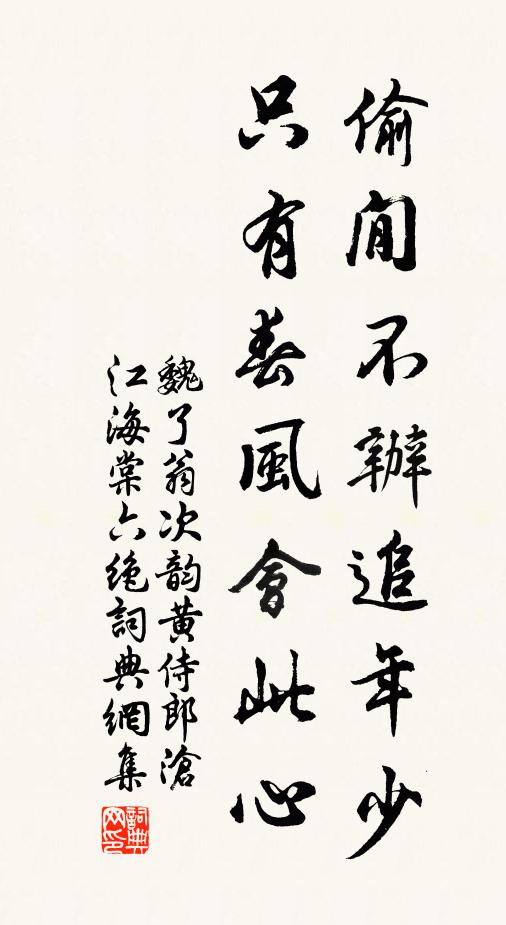 偷閒不辦追年少
只有春風會此心
魏了翁次韵黄侍郎滄
江海棠六絶詞典網集
詞典
网印